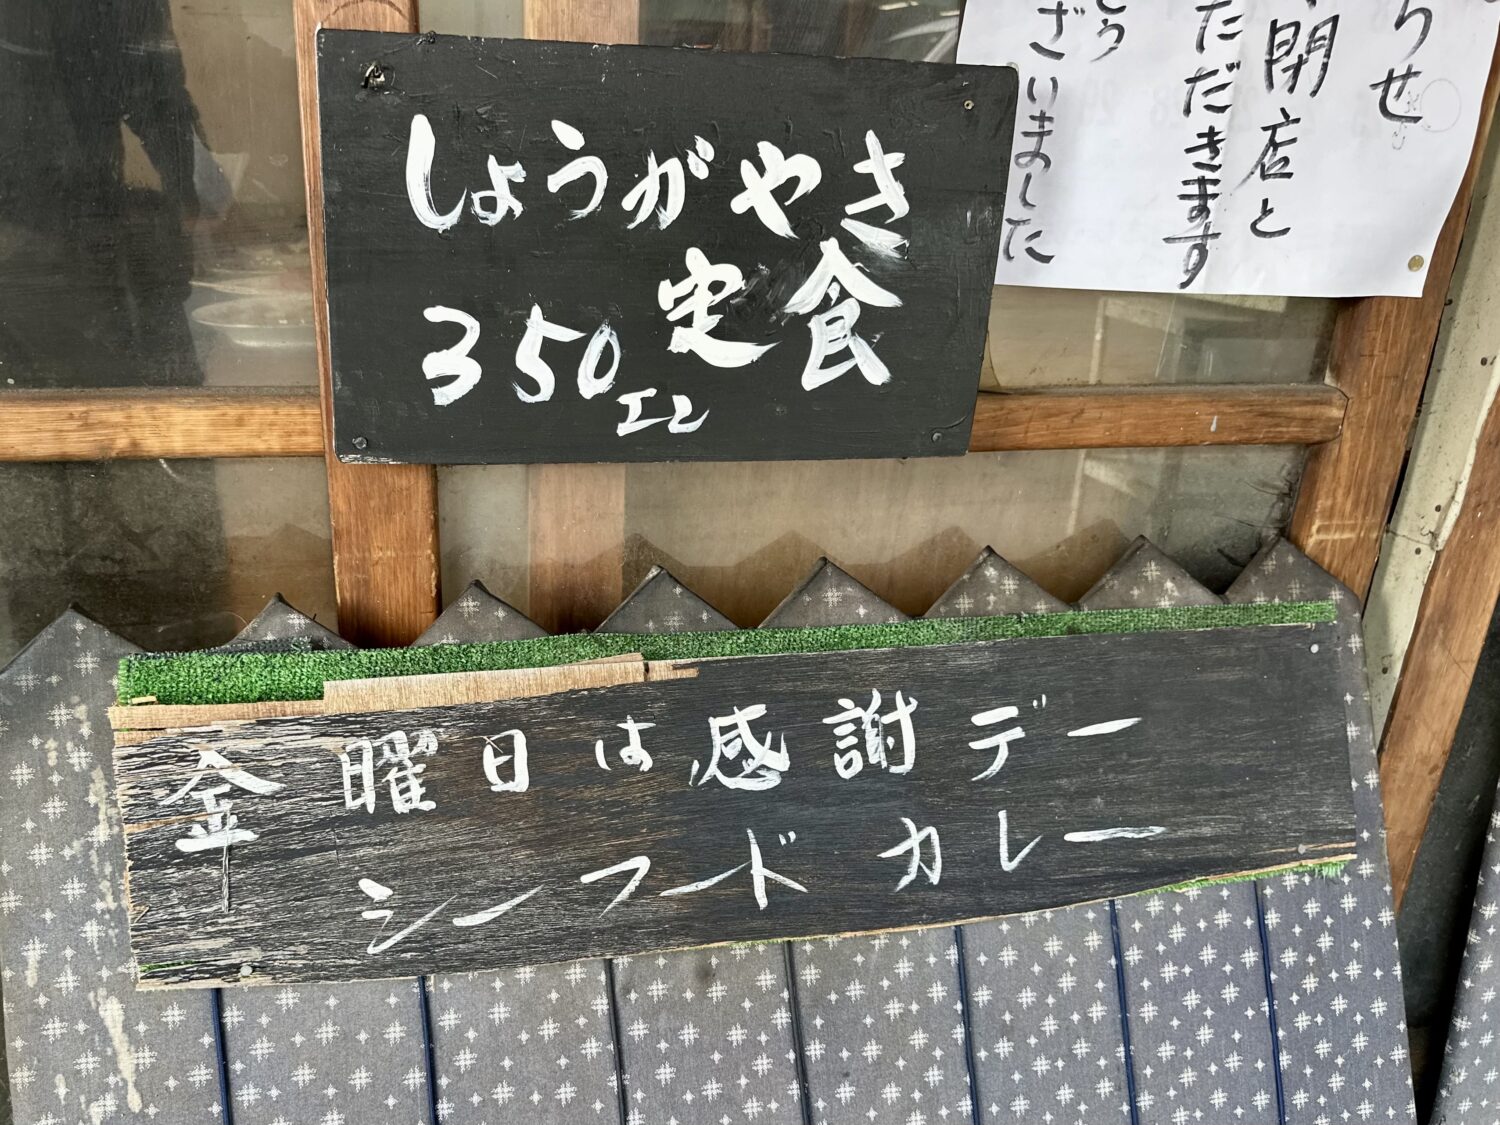 しょうがやき
定食
350エン
らせ
閉店と
ただきます
とう
ざいました
金曜日は感謝デー
シーフードカレー